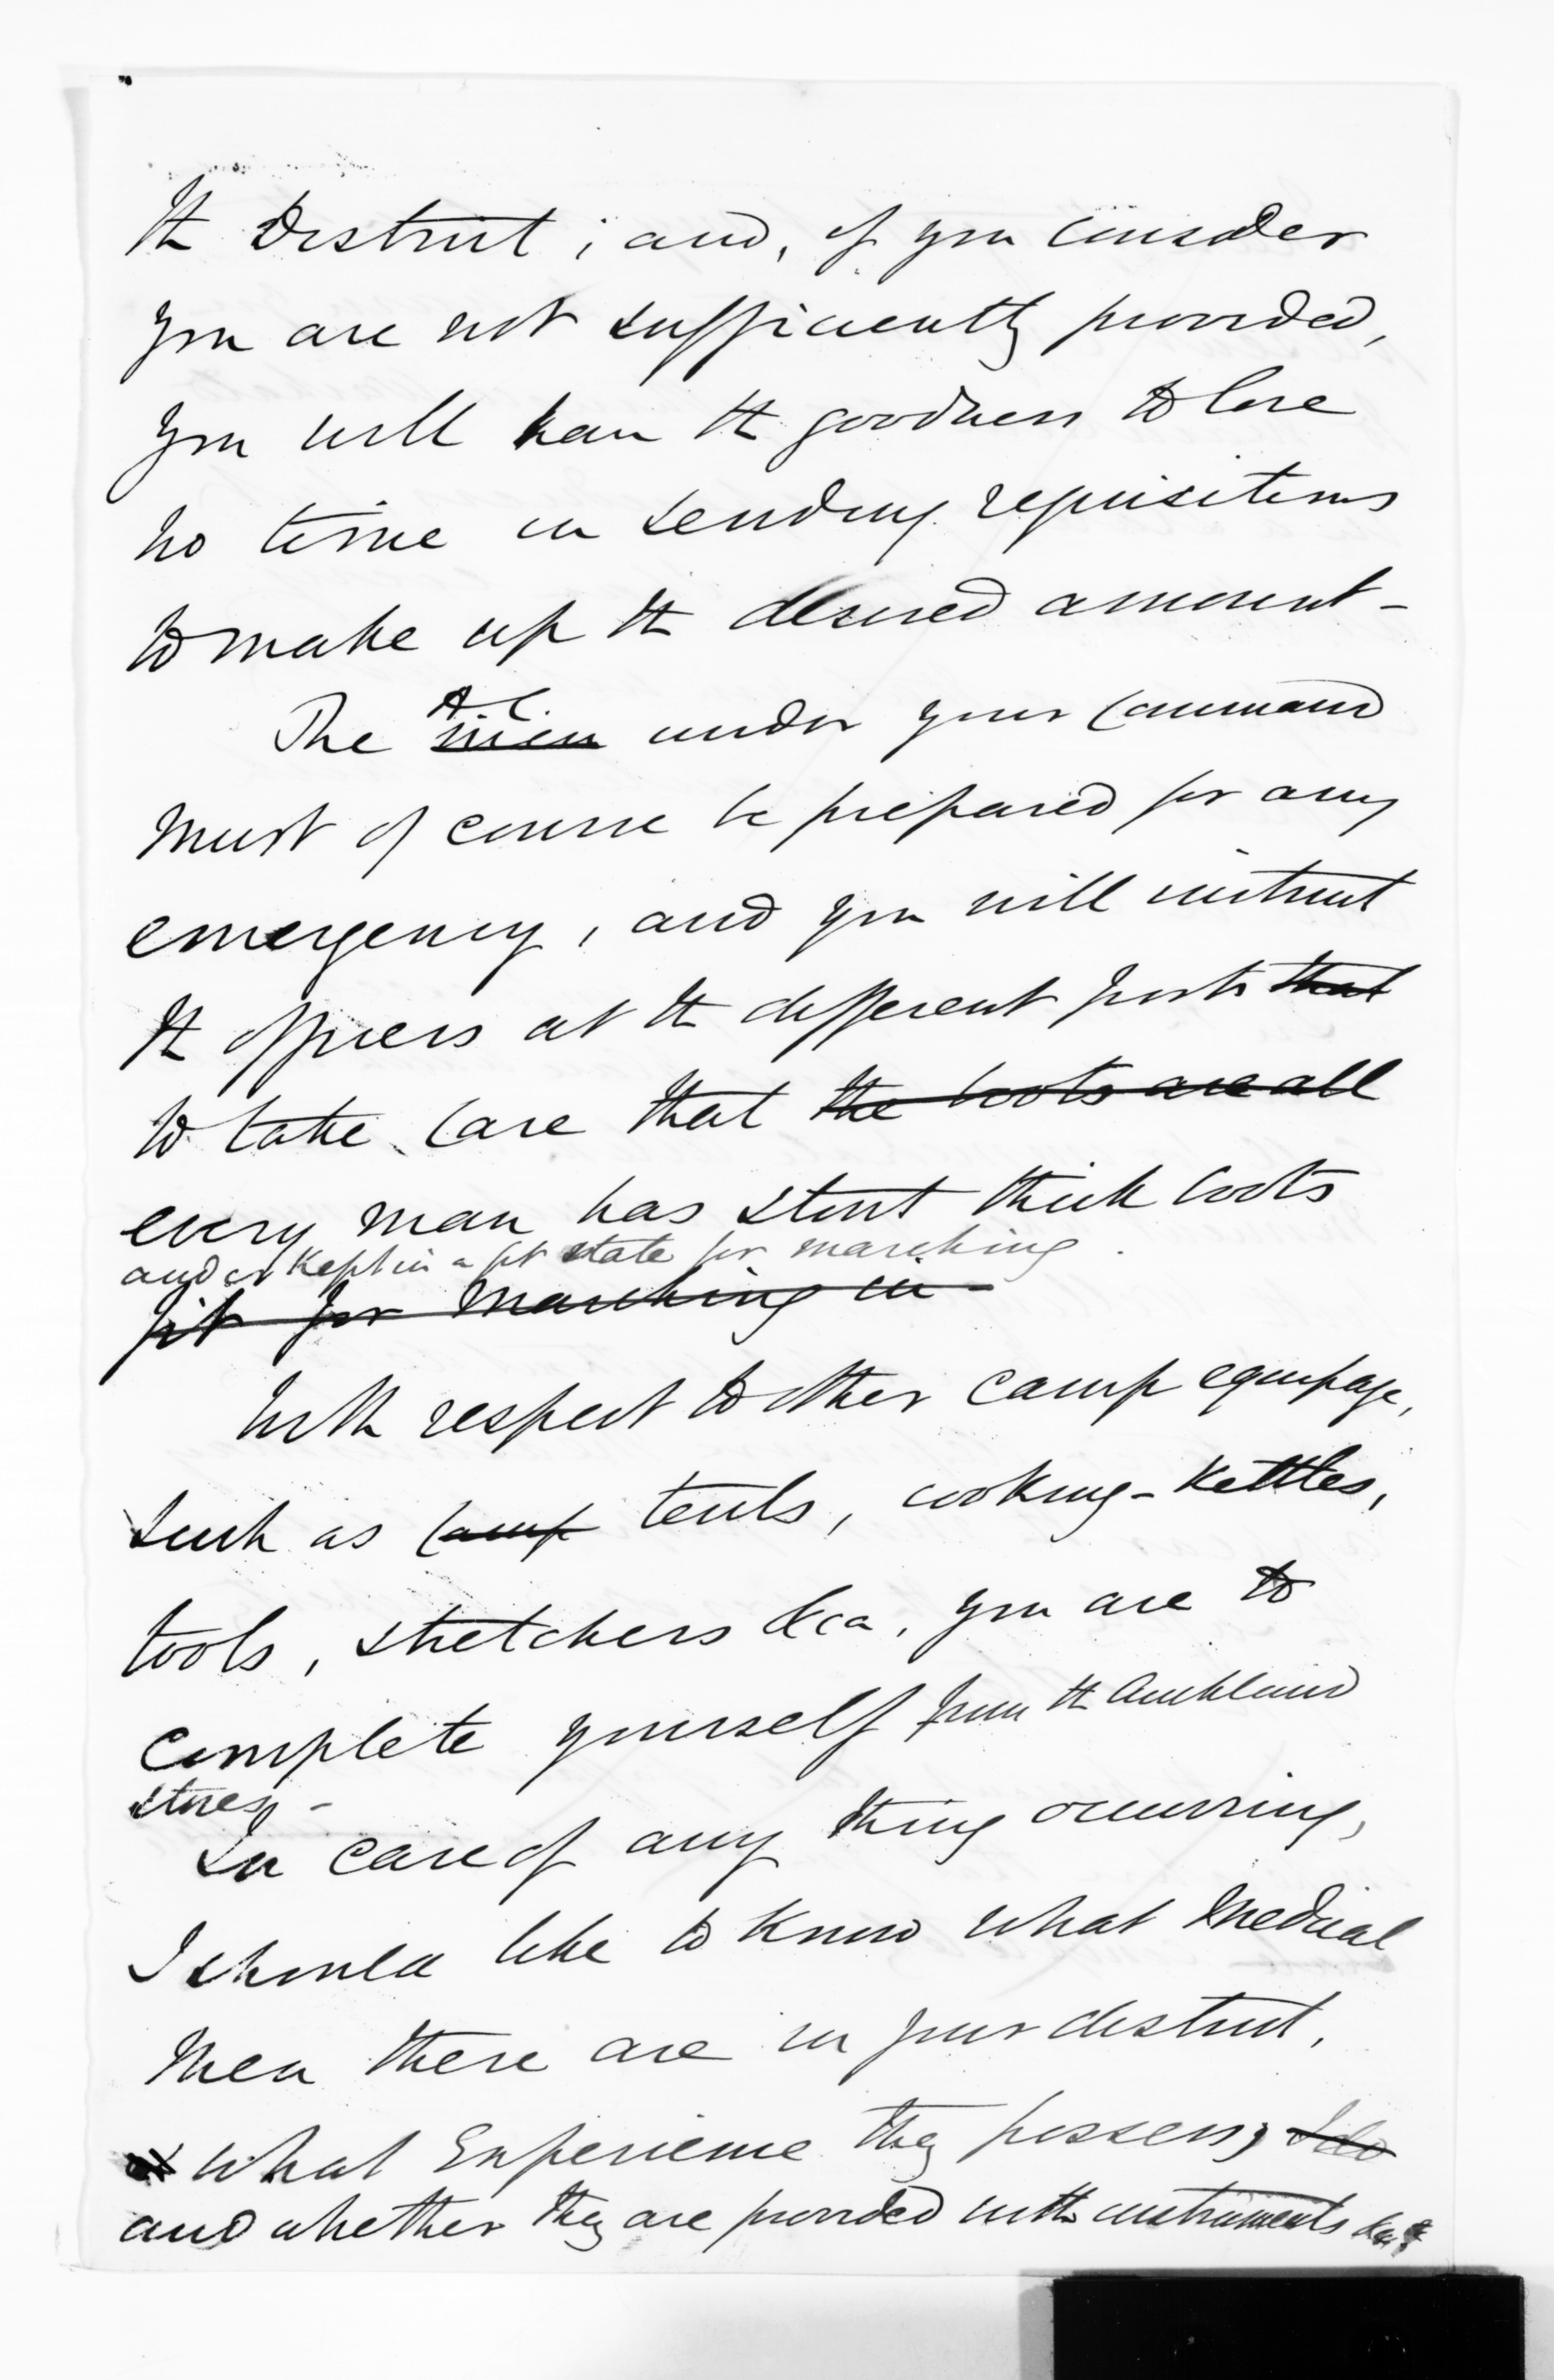 the District; and, if you consider
you are not sufficiently provided,
you will have the goodness to lose
no time in sending requisitions
to make up the desired amount -
A.C.
The men under your command
must of course be prepared for any
emergency, and you will instruct
the officers at the different posts that
to take care that the boots are all
every man has stout thick boots
and is kept in a fit state for marching.
fit for marching in -
With respect to other camp equipage,
such as camp tents, cooking-kettles,
tools, stretchers &ca, you are to
complete yourself from the Auckland
stores -
In case of any thing occurring,
I should like to know what medical
men there are in your district,
what experience they possess, I do
and whether they are provided with instruments &ca